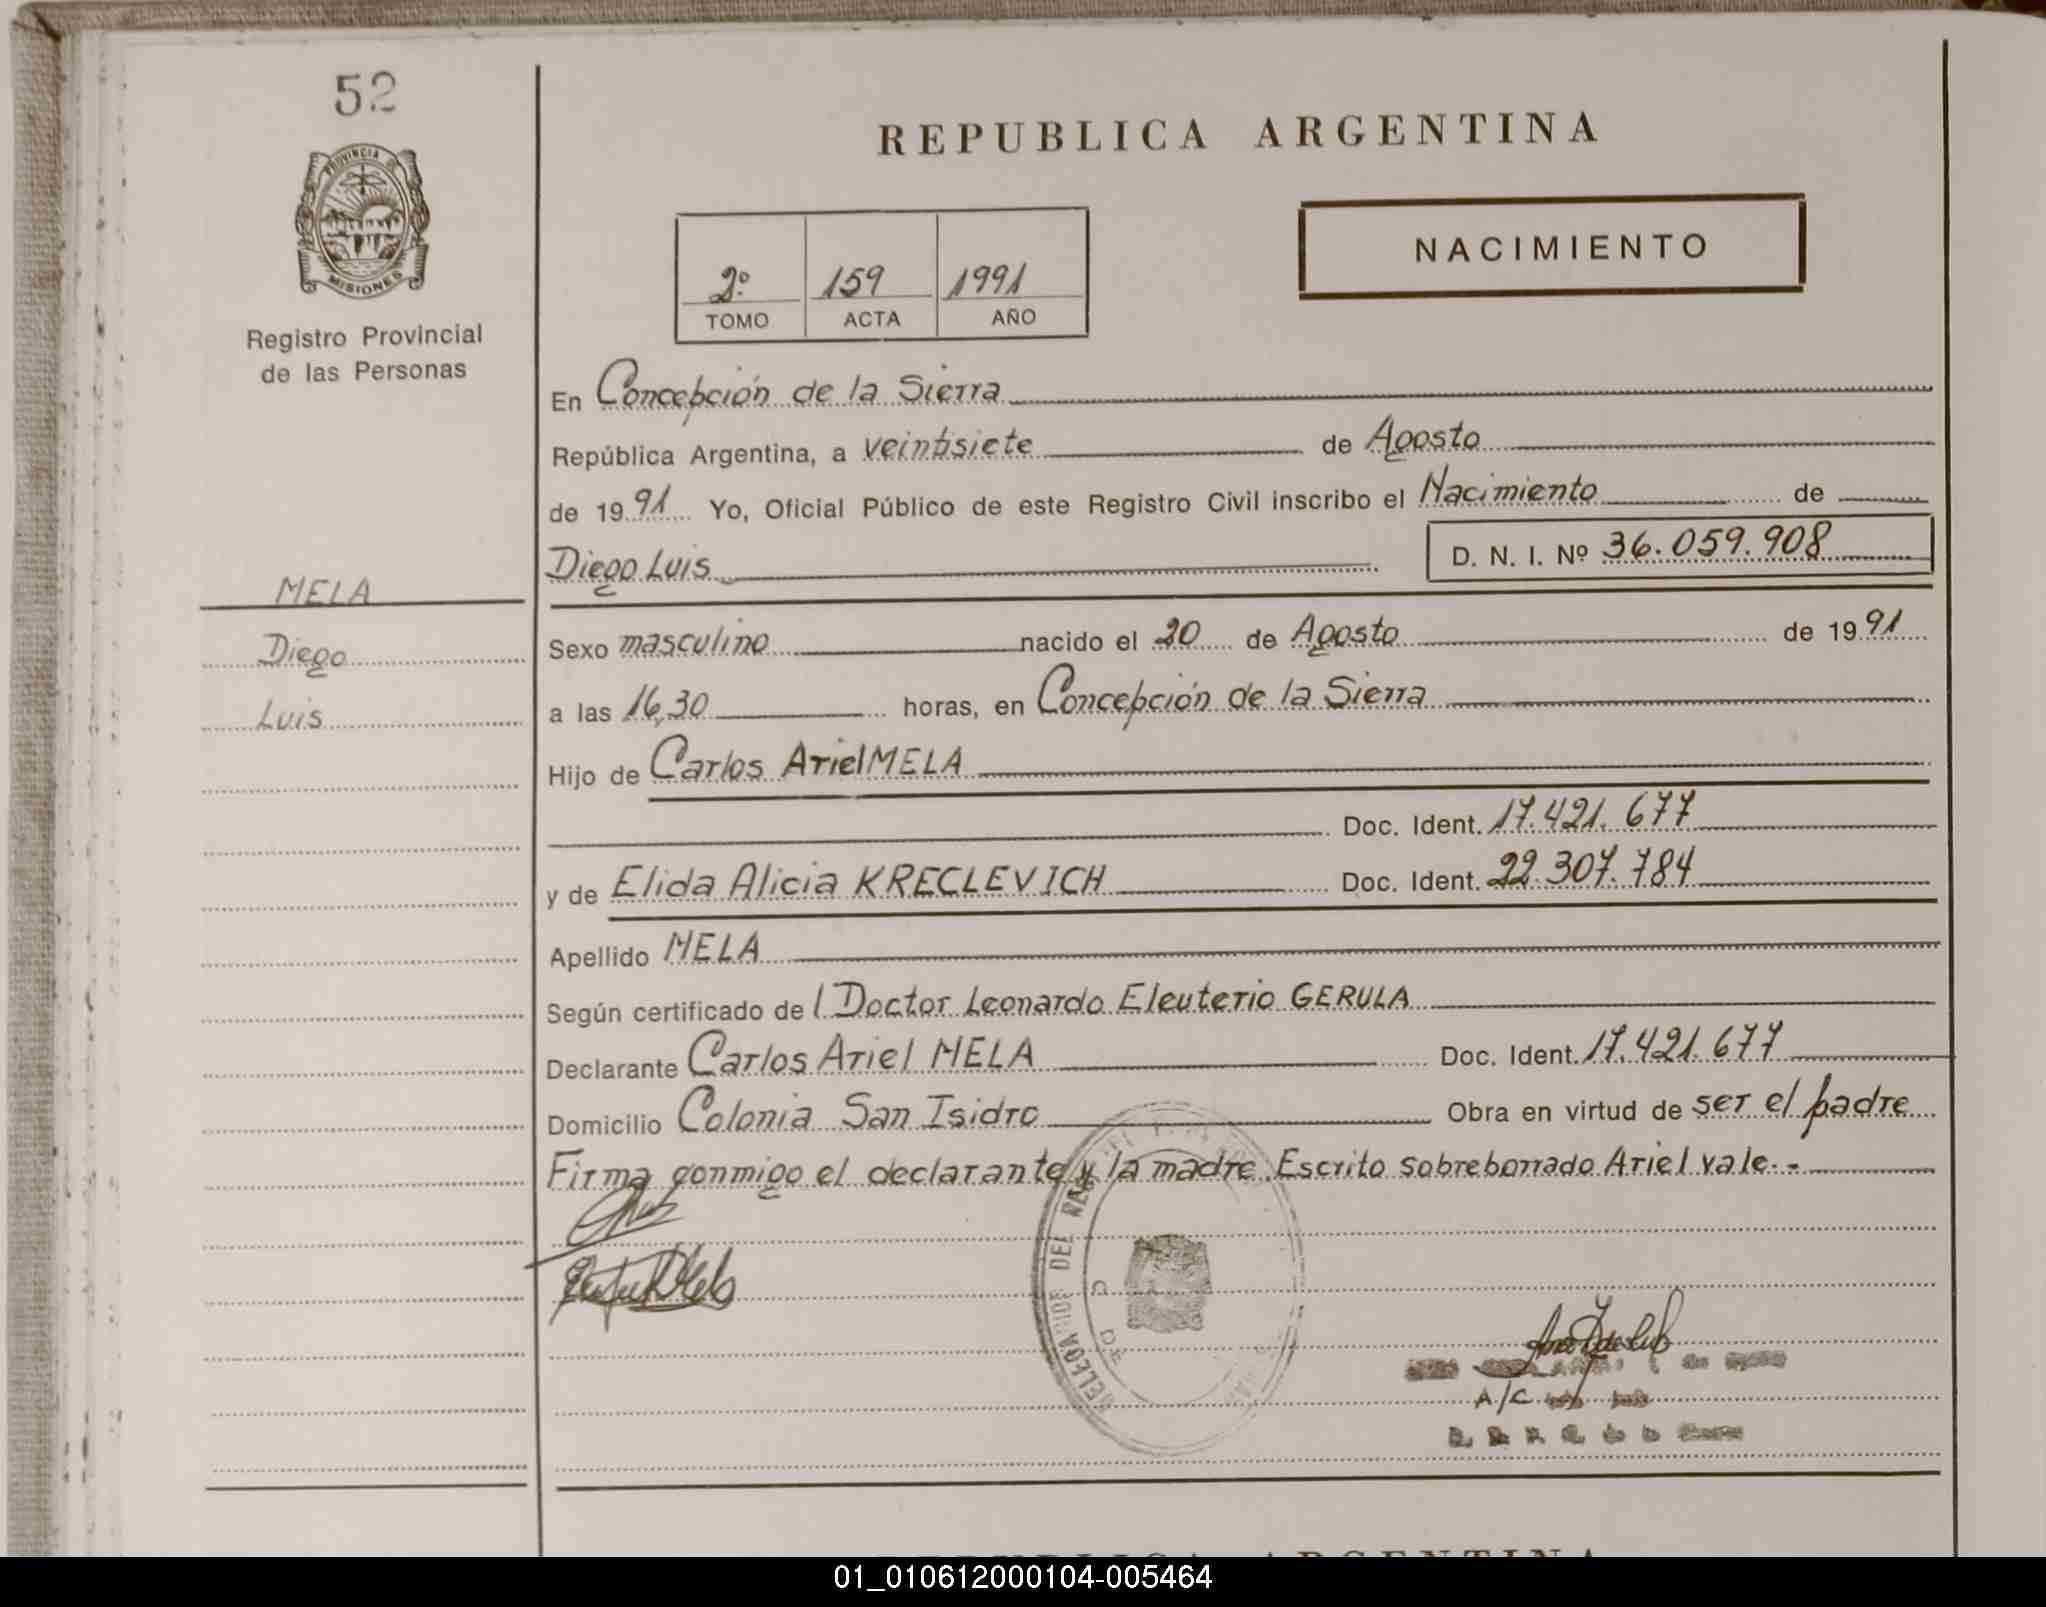 52
PROVINCIA DE
MISIONES
Registro Provincial
de las Personas
REPUBLICA ARGENTINA
NACIMIENTO
2º 159 1991
TOMO ACTA AÑO
En Concepción de la Sierra
República Argentina, a veintisiete de Agosto
de 1991 Yo, Oficial Público de este Registro Civil inscribo el Nacimiento de
Diego Luis D. N. I. Nº 36.059.908
MELA
Diego
Luis
Sexo masculino nacido el 20 de Agosto de 1991
a las 16,30 horas, en Concepción de la Sierra
Hijo de Carlos Ariel MELA
Doc. Ident. 17.421.677
y de Elida Alicia KRECLEVICH Doc. Ident. 22.307.784
Apellido MELA
Según certificado de l Doctor Leonardo Eleuterio GERULA
Declarante Carlos Ariel MELA Doc. Ident. 17.421.677
Domicilio Colonia San Isidro Obra en virtud de ser el padre
Firma conmigo el declarante y la madre. Escrito sobreborrado Ariel vale.-
A/C
REPUBLICA ARGENTINA
01_010612000104-005464